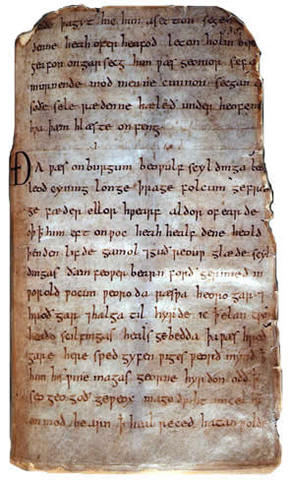 þa gyt hie him asetton segen
denne heah ofer heafod leton holm
geafon ongarsecg him wæs geomor sefa
murnende mod men ne cunnon secgan
soðe sele rædenne hæleð under heofenū
hwa þæm hlæste onfeng
Ða wæs onburgum beowulf scyldinga
leod cyning longe þrage folcum gefræ
ge fæder ellor hwearf aldor of earde
oþ ꝥ him eft onwoc heah healf dene heold
þenden lifde gamol ⁊ guð reouw glæde scyl
dingas ðæm feower bearn forð gerimed in
worold wocun weoroda ræswa heoro gar ⁊
hroð gar ⁊ halga til hyrde ic ꝥ elan cwen
heaðo scilfingas heals gebedda þa wæs hroð
gare here sped gyfen wiges weorð mynd ꝥ
him his wine magas georne hyrdon oðð ꝥ
seo geogoð geweox mago driht micel him
on mod bearn ꝥ heal reced hatan wolde